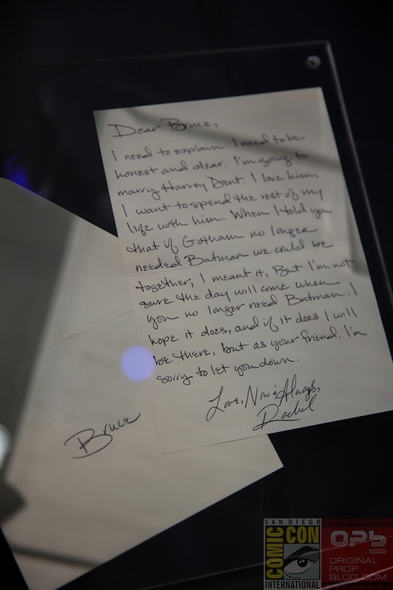 Dear Bruce,
I need to explain. I need to be
honest and clear. I'm going to
marry Harvey Dent. I love him,
I want to spend the rest of my
life with him. When I told you
that if Gotham no longer
needed Batman we could be
together, I meant it, But I'm not
sure the day will come when
you no longer need Batman. I
hope it does, and if it does I will
be there, but as your friend. I'm
sorry to let you down.
Love, Now & Always,
Rachel
Bruce
SAN DIEGO
COMIC CON
INTERNATIONAL
OPb
ORIGINAL
PROP
BLOG.COM